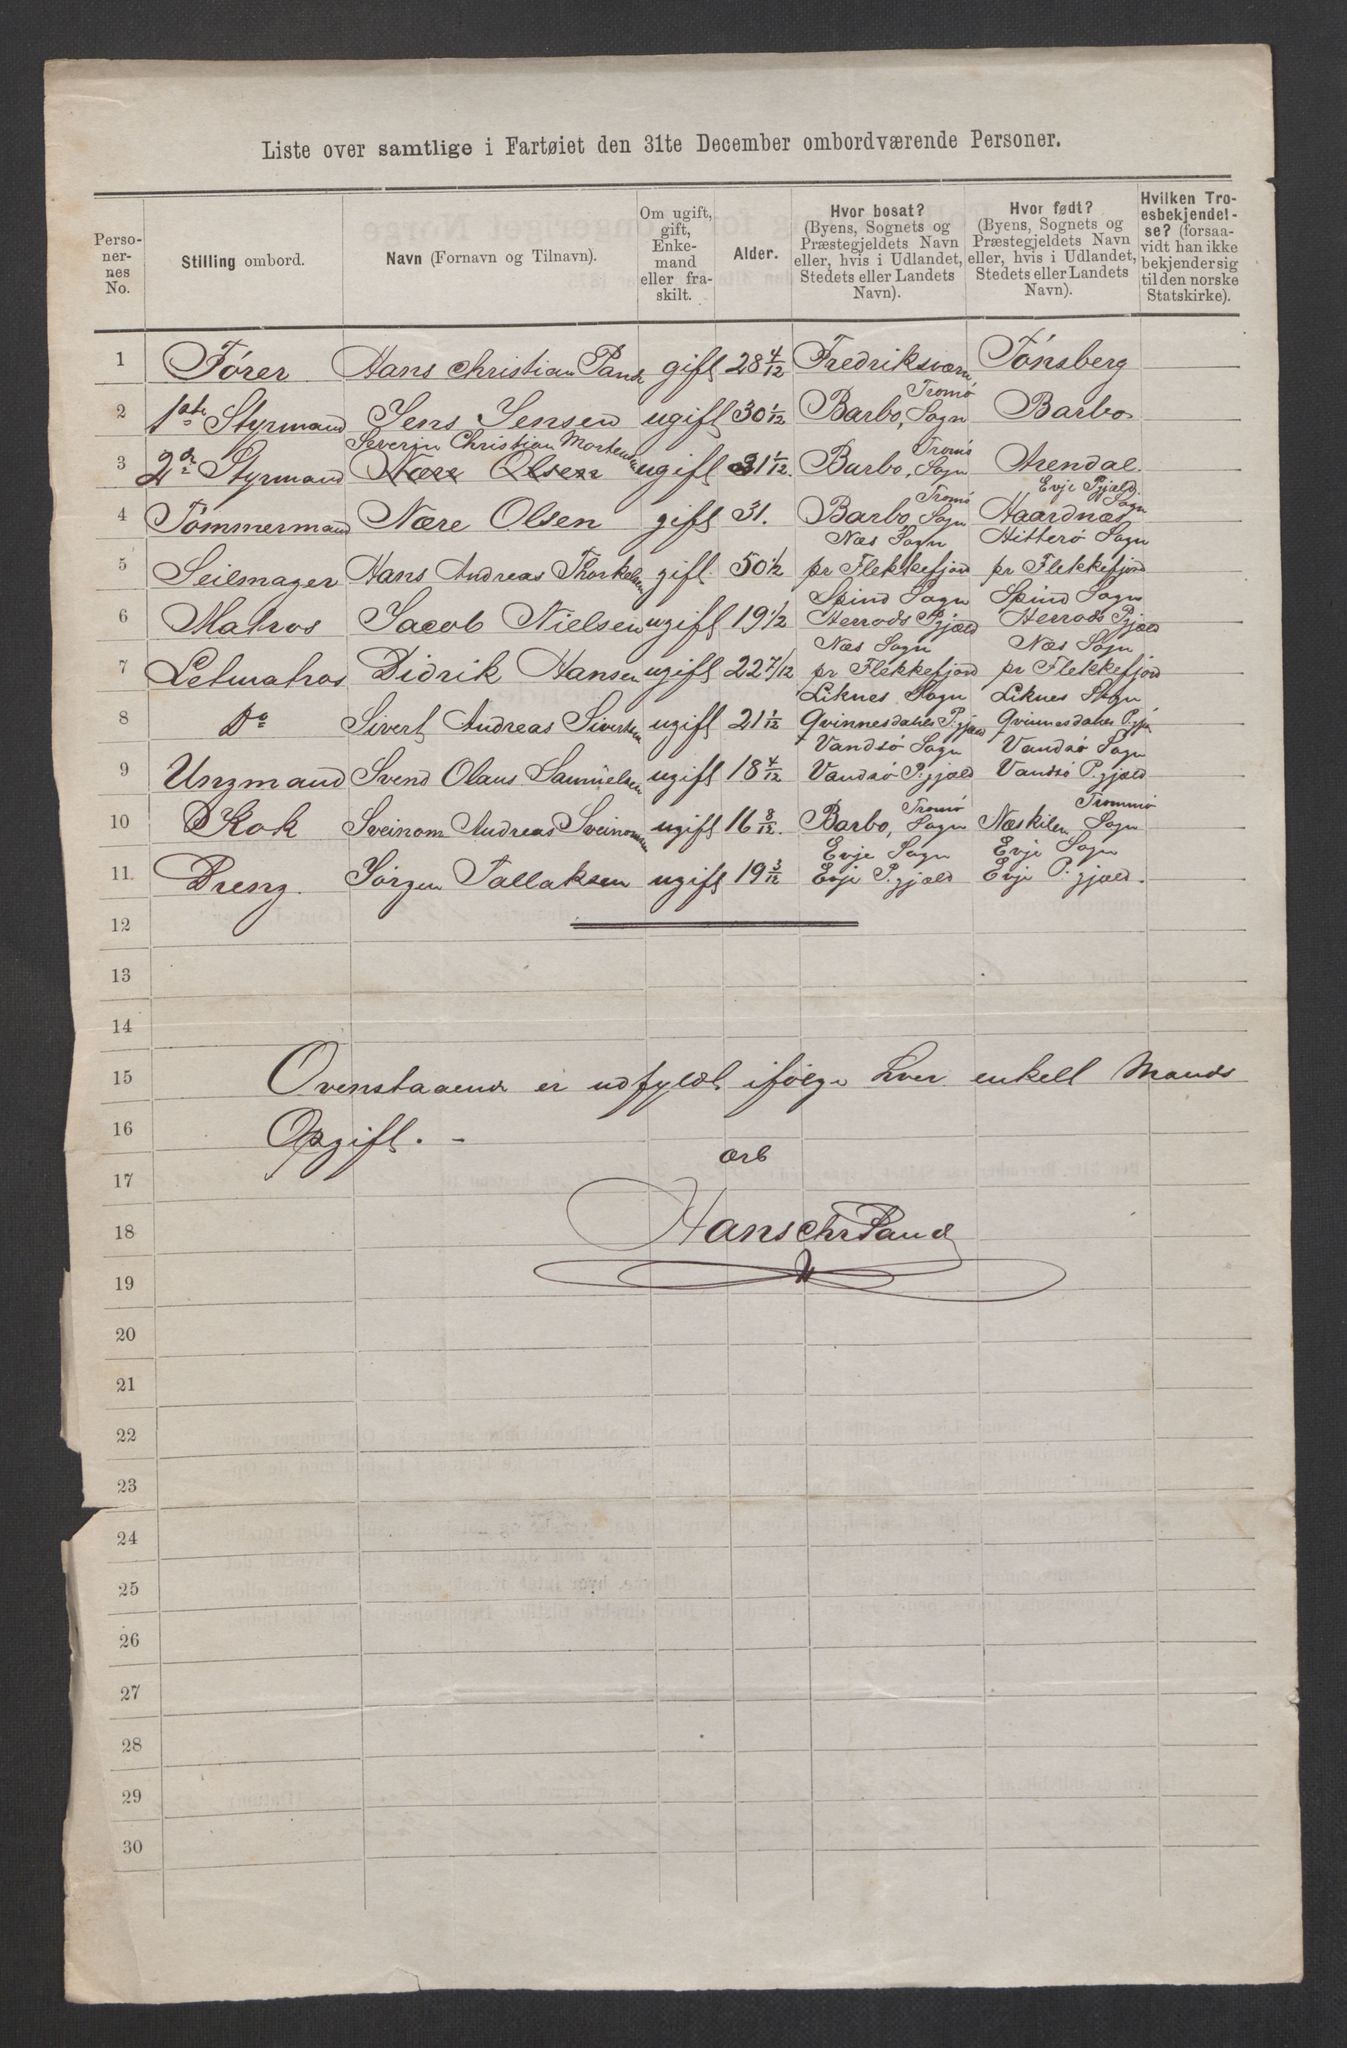 Liste over samtlige i Fartøiet den 31te December ombordværende Personer.
Personernes No. | Stilling ombord. | Navn (Fornavn og Tilnavn). | Om ugift, gift, Enkemand eller fraskilt. | Alder. | Hvor bosat? (Byens, Sognets og Præstegjeldets Navn eller, hvis i Udlandet, Stedets eller Landets Navn). | Hvor født? (Byens, Sognets og Præstegjeldets Navn eller, hvis i Udlandet, Stedets eller Landets Navn). | Hvilken Troesbekjendelse? (forsaavidt han ikke bekjender sig til den norske Statskirke).
1 Fører Hans Christian Pande gift 28 4/12 Fredriksværn Tønsberg
2 1ste Styrmand Jens Jensen ugift 30 1/12 Barbo, Tromø Sogn Barbo
3 2den Styrmand Severin Christian Mortensen Nære Olsen ugift 31 1/12. Barbo, Tromø Sogn Arendal.
4 Tømmermand Nære Olsen gift 31. Barbo, Tromø Sogn Evje Pgjæld. Haardnæs Sogn
5 Seilmager Hans Andreas Thorkelsen gift 50 1/2 Næs Sogn pr Flekkefjord Hitterø Sogn pr Flekkefjord
6 Matros Jacob Nielsen ugift 19 1/2 Spind Sogn Herrods Pgjæld Spind Sogn Herrods Pgjæld
7 Letmatros Didrik Hansen ugift 22 7/12 Næs Sogn pr Flekkefjord Næs Sogn pr Flekkefjord
8 Do Sivert Andreas Sivertsen ugift 21 1/12 Liknes Sogn Qvinnesdalens P.gjæld Liknes Sogn Qvinnesdalens P.gj
9 Ungmand Svend Olaus Samuelsen ugift 18 4/12 Vandsø Sogn Vandsø P.gjæld Vandsø Sogn Vandsø P.gjæld
10 Kok Sveinom Andreas Sveinomsen ugift 16 8/12. Barbo, Tromø Sogn Næskilen Trommø Sogn
11. Dreng. Jørgen Tallaksen ugift 19 3/12 Evje Sogn Evje P.gjæld Evje Sogn Evje P.gjæld.
12
13
14
15 Ovenstaaende er udfyldt ifølge hver enkelt Mands
16 Opgift. -
ærb
17
18 Hans Chr Pande
19
20
21
22
23
24
25
26
27
28
29
30